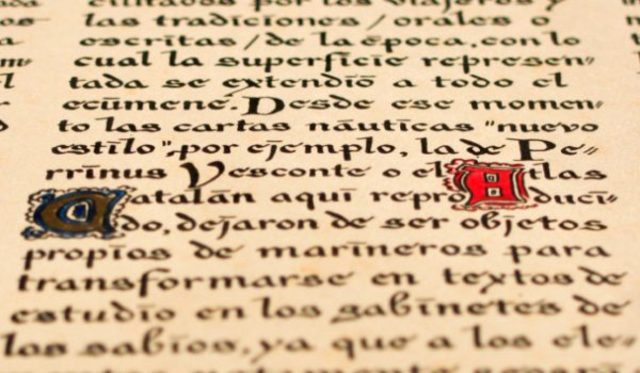 por los viajeros y
las tradiciones/orales o
escritas/de la época, con lo
cual la superficie represen=
tada se extendió a todo el
ecúmene. Desde ese momen=
to las cartas náuticas "nuevo
estilo", por ejemplo, la de Pe=
rrinus Vesconte o el Atlas
Catalán aquí reproduci=
do, dejaron de ser objetos
propios de marineros para
transformarse en textos de
estudio en los gabinetes de
los sabios, ya que a los ele=